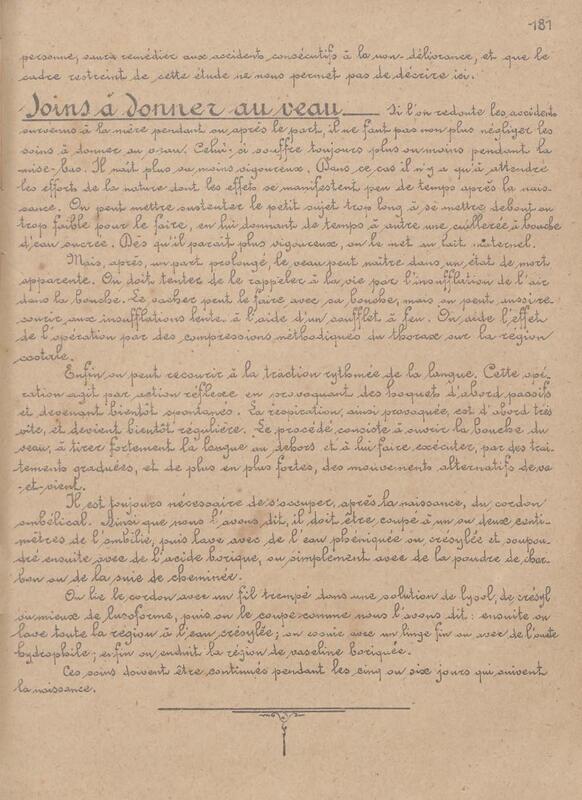 181
personne, saura remédier aux accidents consécutifs à la non-délivrance, et que le
cadre restreint de cette étude ne nous permet pas de décrire ici.
Soins à donner au veau Si l'on redoute les accidents
survenus à la mère pendant ou après le part, il ne faut pas non plus négliger les
soins à donner au veau. Celui-ci souffre toujours plus ou moins pendant la
mise-bas. Il naît plus ou moins vigoureux. Dans ce cas il n'y a qu'à attendre
les efforts de la nature dont les effets se manifestent peu de temps après la nais-
sance. On peut mettre sustenter le petit sujet trop long à se mettre debout ou
trop faible pour le faire, en lui donnant de temps à autre une cuillerée à bouche
d'eau sucrée. Dès qu'il paraît plus vigoureux, on le met au lait maternel.
Mais, après un part prolongé, le veau peut naître dans un état de mort
apparente. On doit tenter de le rappeler à la vie par l'insufflation de l'air
dans la bouche. Le vacher peut le faire avec sa bouche, mais on peut aussi re-
courir aux insufflations lente à l'aide d'un soufflet à feu. On aide l'effet
de l'opération par des compressions méthodiques du thorax sur la région
costale.
Enfin on peut recourir à la traction rythmée de la langue. Cette opé-
ration agit par action réflexe en provoquant des hoquets d'abord passifs
et devenant bientôt spontanés. La respiration, ainsi provoquée, est d'abord très
vite, et devient bientôt régulière. Le procédé consiste à ouvrir la bouche du
veau, à tirer fortement la langue au dehors et à lui faire exécuter, par des trai-
tements graduées, et de plus en plus fortes, des mouvements alternatifs de va
-et-vient.
Il est toujours nécessaire de s'occuper, après la naissance, du cordon
ombélical. Ainsi que nous l'avons dit, il doit être coupé à un ou deux centi-
mètres de l'ombilic, puis lavé avec de l'eau phéniquée ou crésylée et soupou-
dré ensuite avec de l'acide borique, ou simplement avec de la poudre de char-
bon ou de la suie de cheminée.
On lie le cordon avec un fil trempé dans une solution de lysol, de crésyl
ou mieux de lusoforme, puis on le coupe comme nous l'avons dit: ensuite on
lave toute la région à l'eau crésylée; on essuie avec un linge fin ou avec de l'ouate
hydrophile; enfin on enduit la région de vaseline boriquée.
Ces soins doivent être continués pendant les cinq ou six jours qui suivent
la naissance.